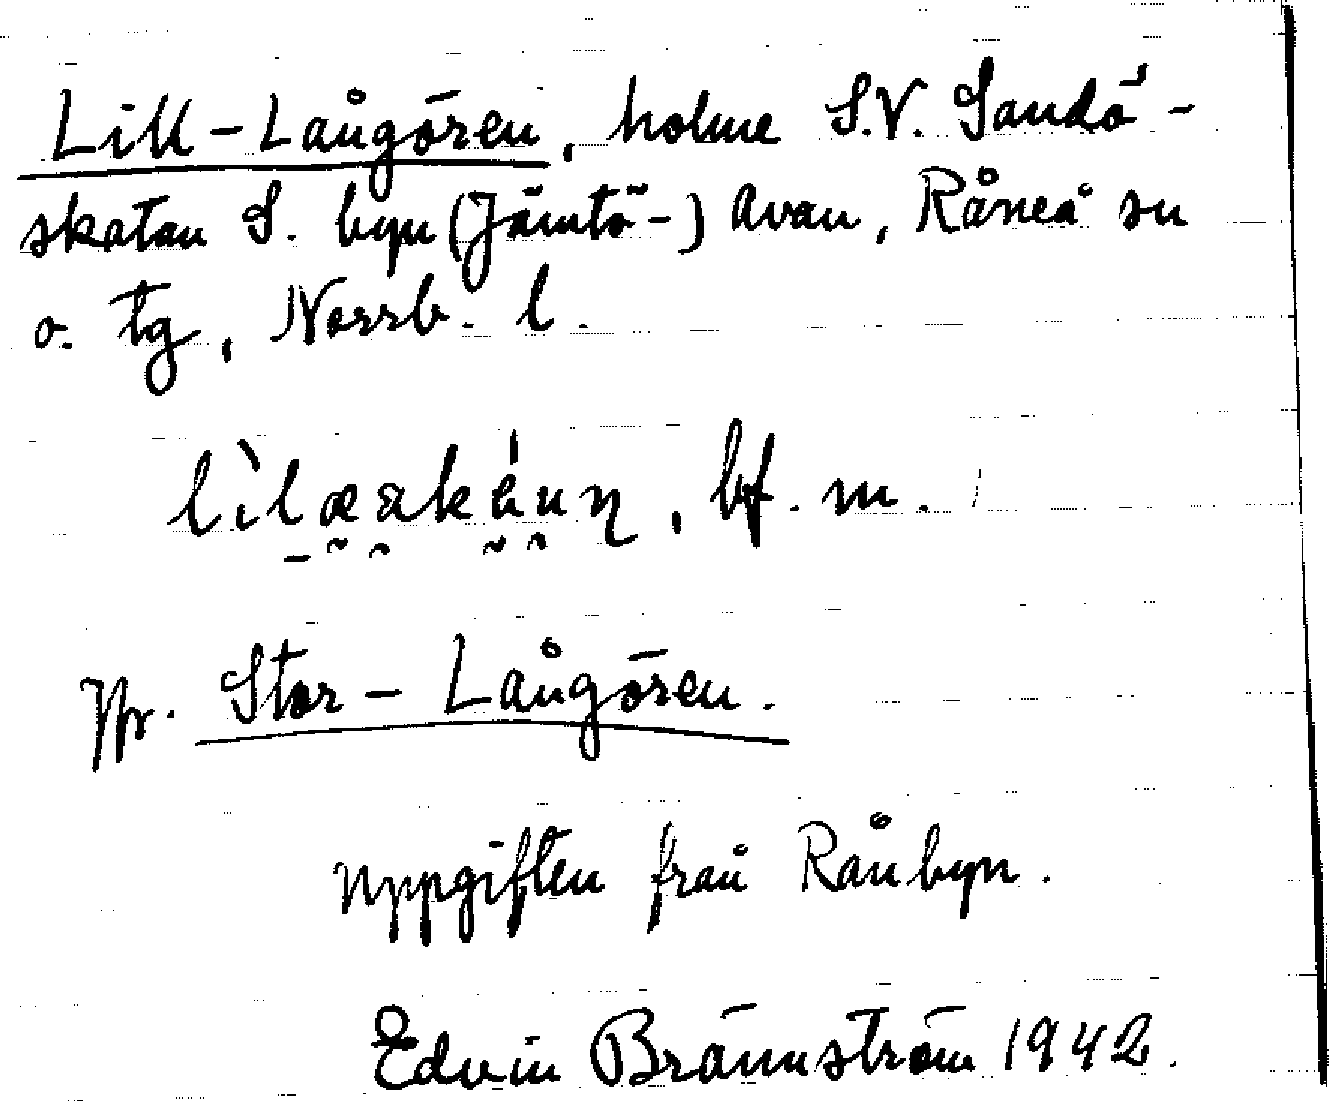 Lill-Långören, holme S.V. Sandö-
skatan S. byn (Jämtö-) Avan, Råneå sn
o. tg, Norrb. l.
bf. m.
Jfr. Stor-Långören.
Uppgiften från Rånbyn.
Edvin Brännström 1942.